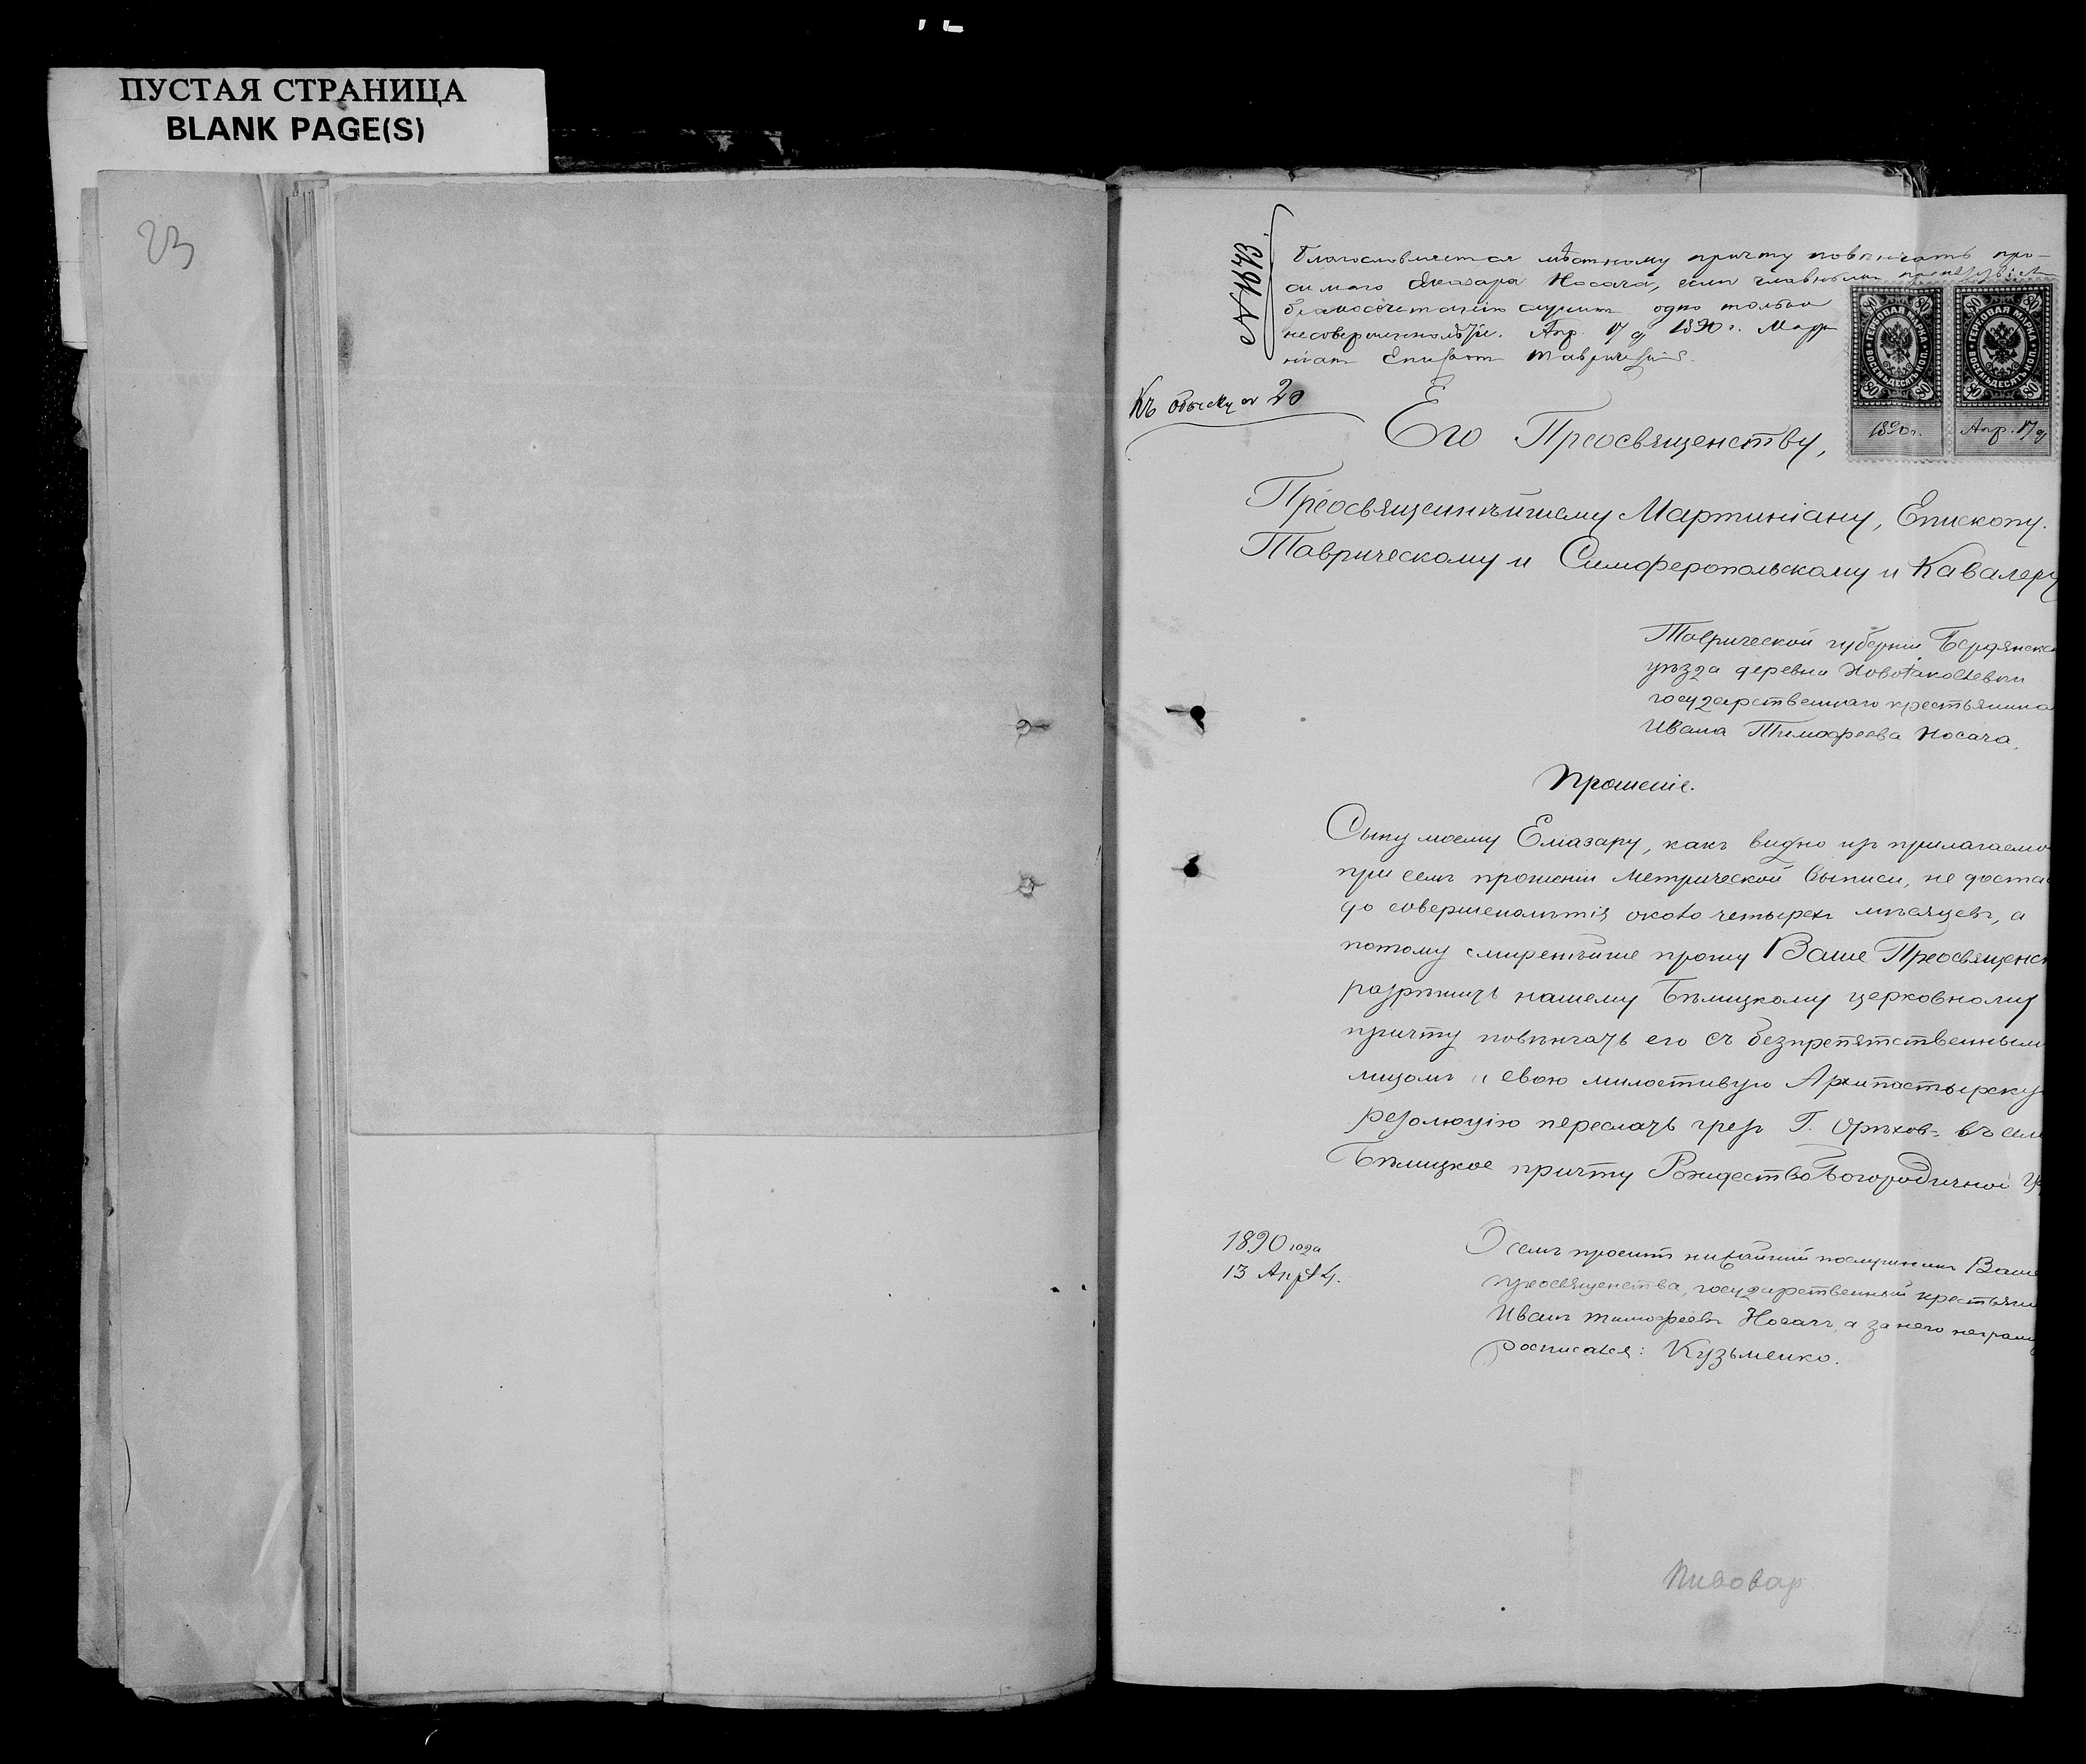 ПУСТАЯ СТРАНИЦА
BLANK PAGE(S)
23
№ 1643
Благословляется мѣстному причту повѣнчать про-
симаго Елеазара Носача, если
бракосочетанію служитъ одно только
несовершеннолѣтіе. Апр. 17 д. 1890 г. Марти
ніанъ Епископъ Таврическій.
Къ обыску № 20
80 80
ГЕРБОВАЯ МАРКА
ВОСЕМЬДЕСЯТЪ КОП.
80 80
1890 г.
80 80
ГЕРБОВАЯ МАРКА
ВОСЕМЬДЕСЯТЪ КОП.
80 80
Апр. 17 д
Его Преосвященству,
Преосвященнѣйшему Мартиніану, Епископу
Таврическому и Симферопольскому и Кавалеру
Таврической губерніи Бердянска
уѣзда деревни
государственнаго крестьянина
Ивана Тимофеева Носача,
Прошеніе.
Сыну моему Елиазару, какъ видно изъ прилагаемо
при семъ прошеніи метрической выписи, не доста
до совершенолѣтія около четырехъ мѣсяцевъ, а
потому смиреннѣйше прошу Ваше Преосвященс
разрѣшить нашему Бѣлицкому церковному
причту повѣнчать его съ безпрепятственным
лицомъ и свою милостивую Архипастырску
резолюцію переслать чрезъ Г. Орѣховъ въ сел
Бѣлицкое причту Рождество Богородичной Ц
1890 года
13 Апрѣл.
О семъ проситъ нижайшій послушникъ Ваше
преосвященства, государственный крестьян
Иванъ Тимофеевъ Носачъ, а за него неграм
росписался: Кузьменко.
Пивовар